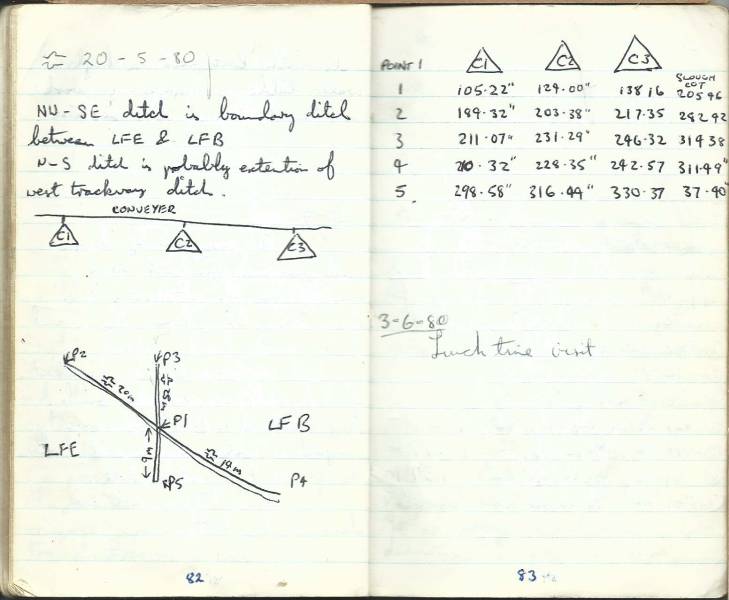 ≈ 20 - 5 - 80
NW-SE ditch is boundary ditch
between LFE & LFB
N-S ditch is probably extention of
west trackway ditch.
CONVEYER
C1 C2 C3
P2 P3
≈ 20m
P1
LFB
LFE
9m
≈ 19m
P5
P4
82
POINT 1 C1 C2 C3 SLOUGH COT
1 105.22" 129.00" 138 16 205 46
2 199.32" 203.38" 217.35 292 92
3 211.07" 231.29" 246.32 314 38
4 210.32" 228.35" 242.57 311.49"
5. 298.58" 316.44" 330.37 37.40"
3-6-80
Lunch time visit
83